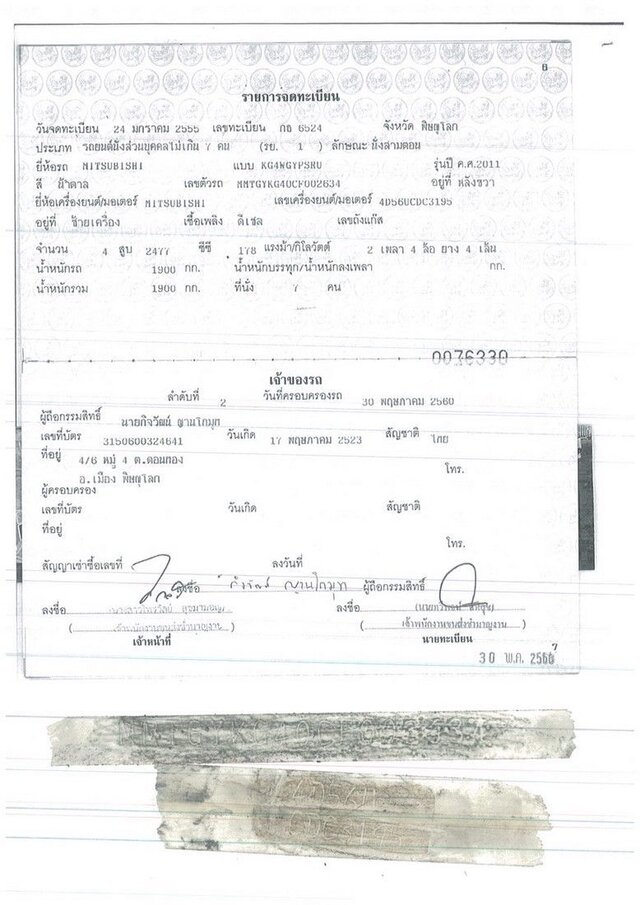 6
รายการจดทะเบียน
วันจดทะเบียน 24 มกราคม 2555 เลขทะเบียน กธ 6524 จังหวัด พิษณุโลก
ประเภท รถยนต์นั่งส่วนบุคคลไม่เกิน 7 คน (รย. 1 ) ลักษณะ นั่งสามตอน
ยี่ห้อรถ MITSUBISHI แบบ KG4WGYPSRU รุ่นปี ค.ศ.2011
สี น้ำตาล เลขตัวรถ MMTGYKG40CF002634 อยู่ที่ หลังขวา
ยี่ห้อเครื่องยนต์/มอเตอร์ MITSUBISHI เลขเครื่องยนต์/มอเตอร์ 4D56UCDC3195
อยู่ที่ ซ้ายเครื่อง เชื้อเพลิง ดีเซล เลขถังแก๊ส
จำนวน 4 สูบ 2477 ซีซี 178 แรงม้า/กิโลวัตต์ 2 เพลา 4 ล้อ ยาง 4 เส้น
น้ำหนักรถ 1900 กก. น้ำหนักบรรทุก/น้ำหนักลงเพลา กก.
น้ำหนักรวม 1900 กก. ที่นั่ง 7 คน
0076330
เจ้าของรถ
ลำดับที่ 2 วันที่ครอบครองรถ 30 พฤษภาคม 2560
ผู้ถือกรรมสิทธิ์ นายกิจวัฒน์ ญานโกมุท
เลขที่บัตร 3150600324641 วันเกิด 17 พฤษภาคม 2523 สัญชาติ ไทย
ที่อยู่ 4/6 หมู่ 4 ต.ดอนทอง
โทร.
อ.เมือง พิษณุโลก
ผู้ครอบครอง
เลขที่บัตร วันเกิด สัญชาติ
ที่อยู่
โทร.
สัญญาเช่าซื้อเลขที่ ลงวันที่
ลงชื่อ ญานโกมุท ผู้ถือกรรมสิทธิ์
ลงชื่อ ลงชื่อ
( เจ้าพนักงานขนส่งชำนาญงาน ) ( เจ้าพนักงานขนส่งชำนาญงาน )
เจ้าหน้าที่ นายทะเบียน
7
30 พ.ค. 2560